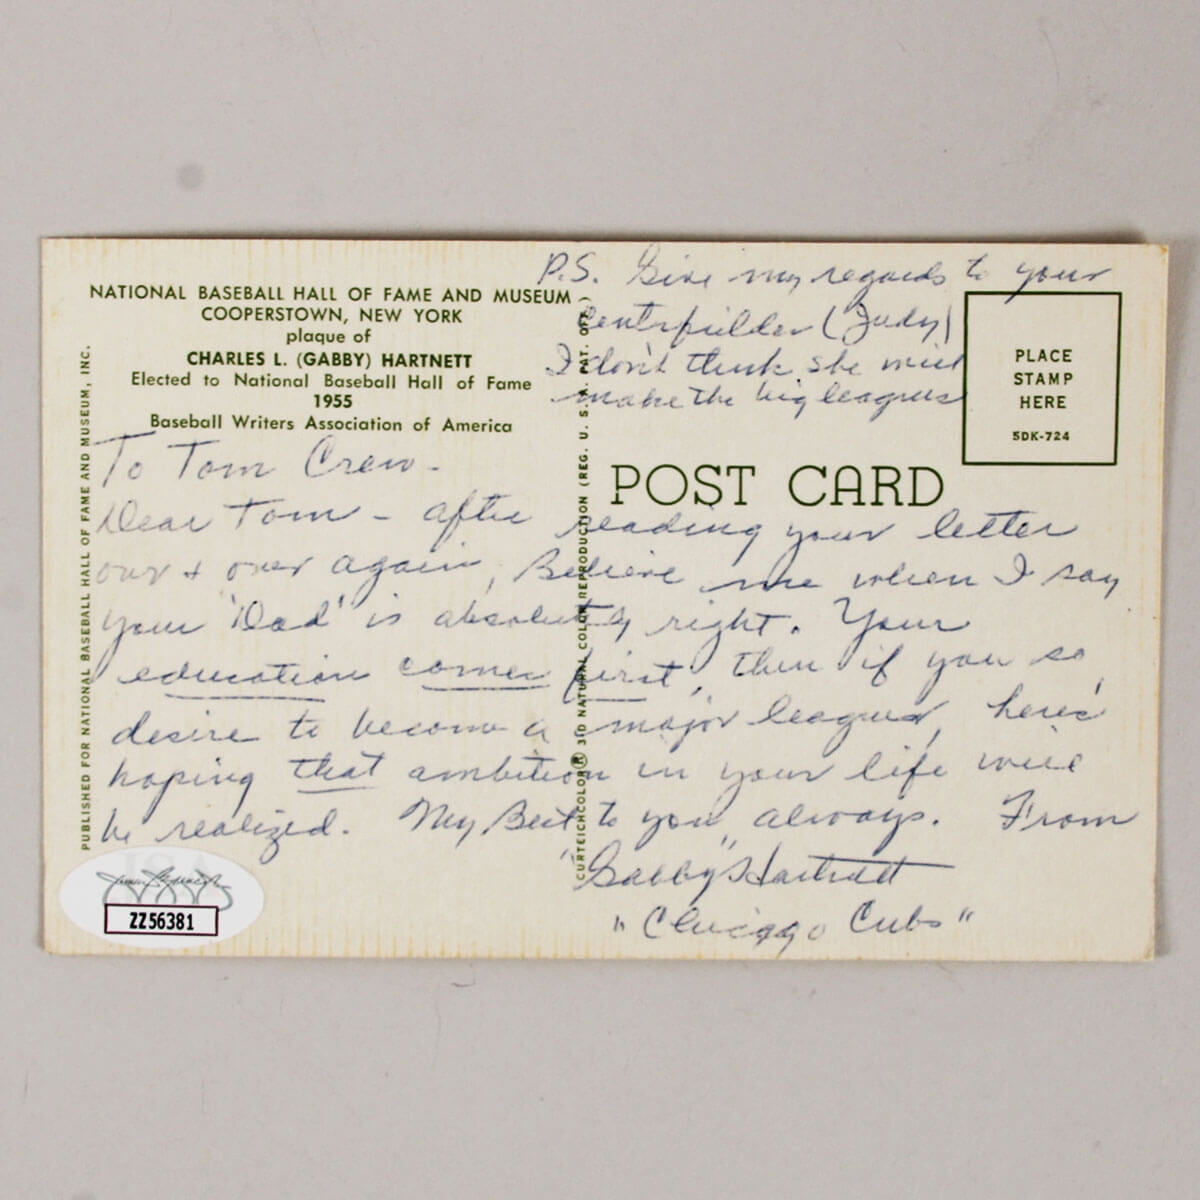 NATIONAL BASEBALL HALL OF FAME AND MUSEUM
COOPERSTOWN, NEW YORK
plaque of
CHARLES L. (GABBY) HARTNETT
Elected to National Baseball Hall of Fame
1955
Baseball Writers Association of America
P.S. Give my regards to your
Centerfielder (Judy)
I don't think she will
make the big leagues
PLACE
STAMP
HERE
5DK-724
POST CARD
PUBLISHED FOR NATIONAL BASEBALL HALL OF FAME AND MUSEUM, INC.
CURTEICHCOLOR® 3D NATURAL COLOR REPRODUCTION (REG. U. S. PAT. OFF.)
To Tom Crew -
Dear Tom - after reading your letter
over & over again, Believe me when I say
your 'Dad' is absolutely right. Your
education comes first, then if you so
desire to become a major leaguer, here's
hoping that ambition in your life will
be realized. My Best to you always. From
"Gabby" Hartnett
"Chicago Cubs"
JSA
ZZ56381